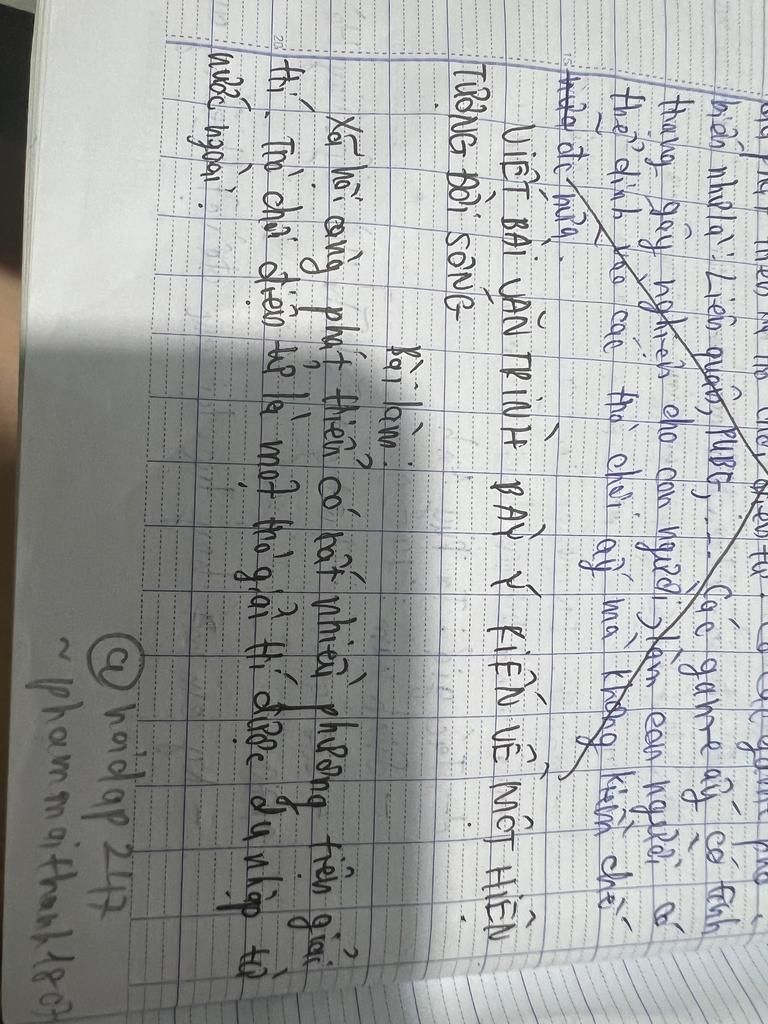 biến như là: Liên quân, PUBG, .... Các game ấy có tính
thẳng gây nghiện cho con người, làm con người có
thể dính vào các trò chơi ấy mà không kiềm chế
nữa.
VIẾT BÀI VĂN TRÌNH BÀY Ý KIẾN VỀ MỘT HIỆN
TƯỢNG ĐỜI SỐNG
Bài làm:
Xã hội càng phát triển có rất nhiều phương tiện giải
trí. Trò chơi điện tử là một trò giải trí được du nhập từ
nước ngoài.
@hoidap247
~phammaithanh18